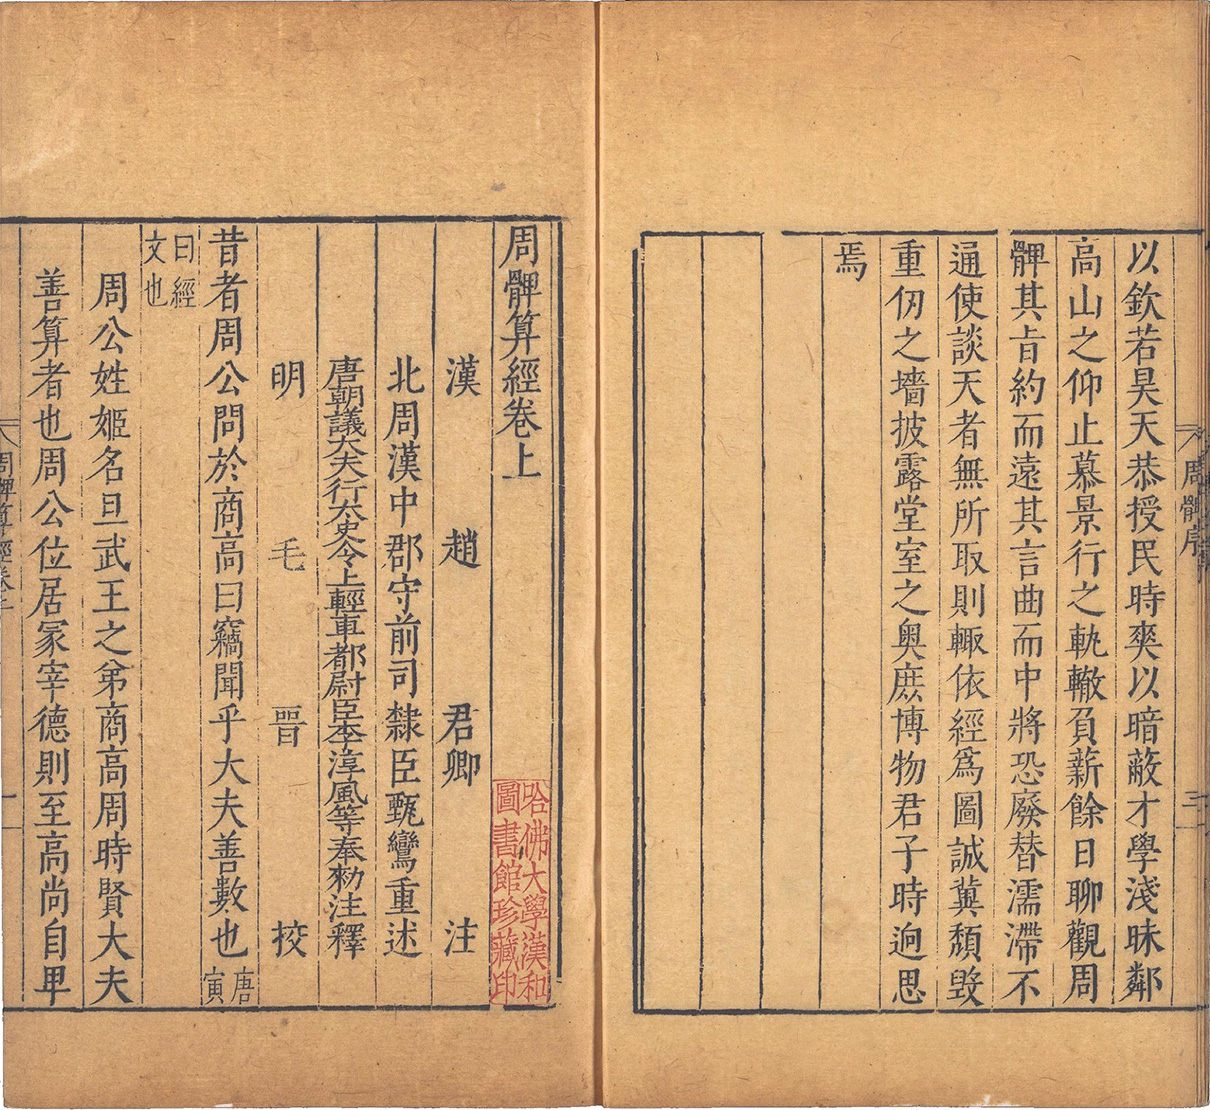 周髀序
三
以欽若昊天恭授民時爽以暗蔽才學淺昧鄰
高山之仰止慕景行之軌轍負薪餘日聊觀周
髀其旨約而遠其言曲而中將恐廢替濡滯不
通使談天者無所取則輒依經爲圖誠冀頹毀
重仞之墻披露堂室之奥庶博物君子時迥思
焉
周髀算經卷上
哈佛大學漢和
圖書館珍藏印
漢 趙 君卿 注
北周漢中郡守前司隸臣甄鸞重述
唐朝議大夫行太史令上輕車都尉臣李淳風等奉勑注釋
明 毛 晋 挍
昔者周公問於商高曰竊聞乎大夫善數也唐寅
曰經
文也
周公姓姬名旦武王之弟商高周時賢大夫
善算者也周公位居冢宰德則至高尚自卑
周髀算經卷上
一